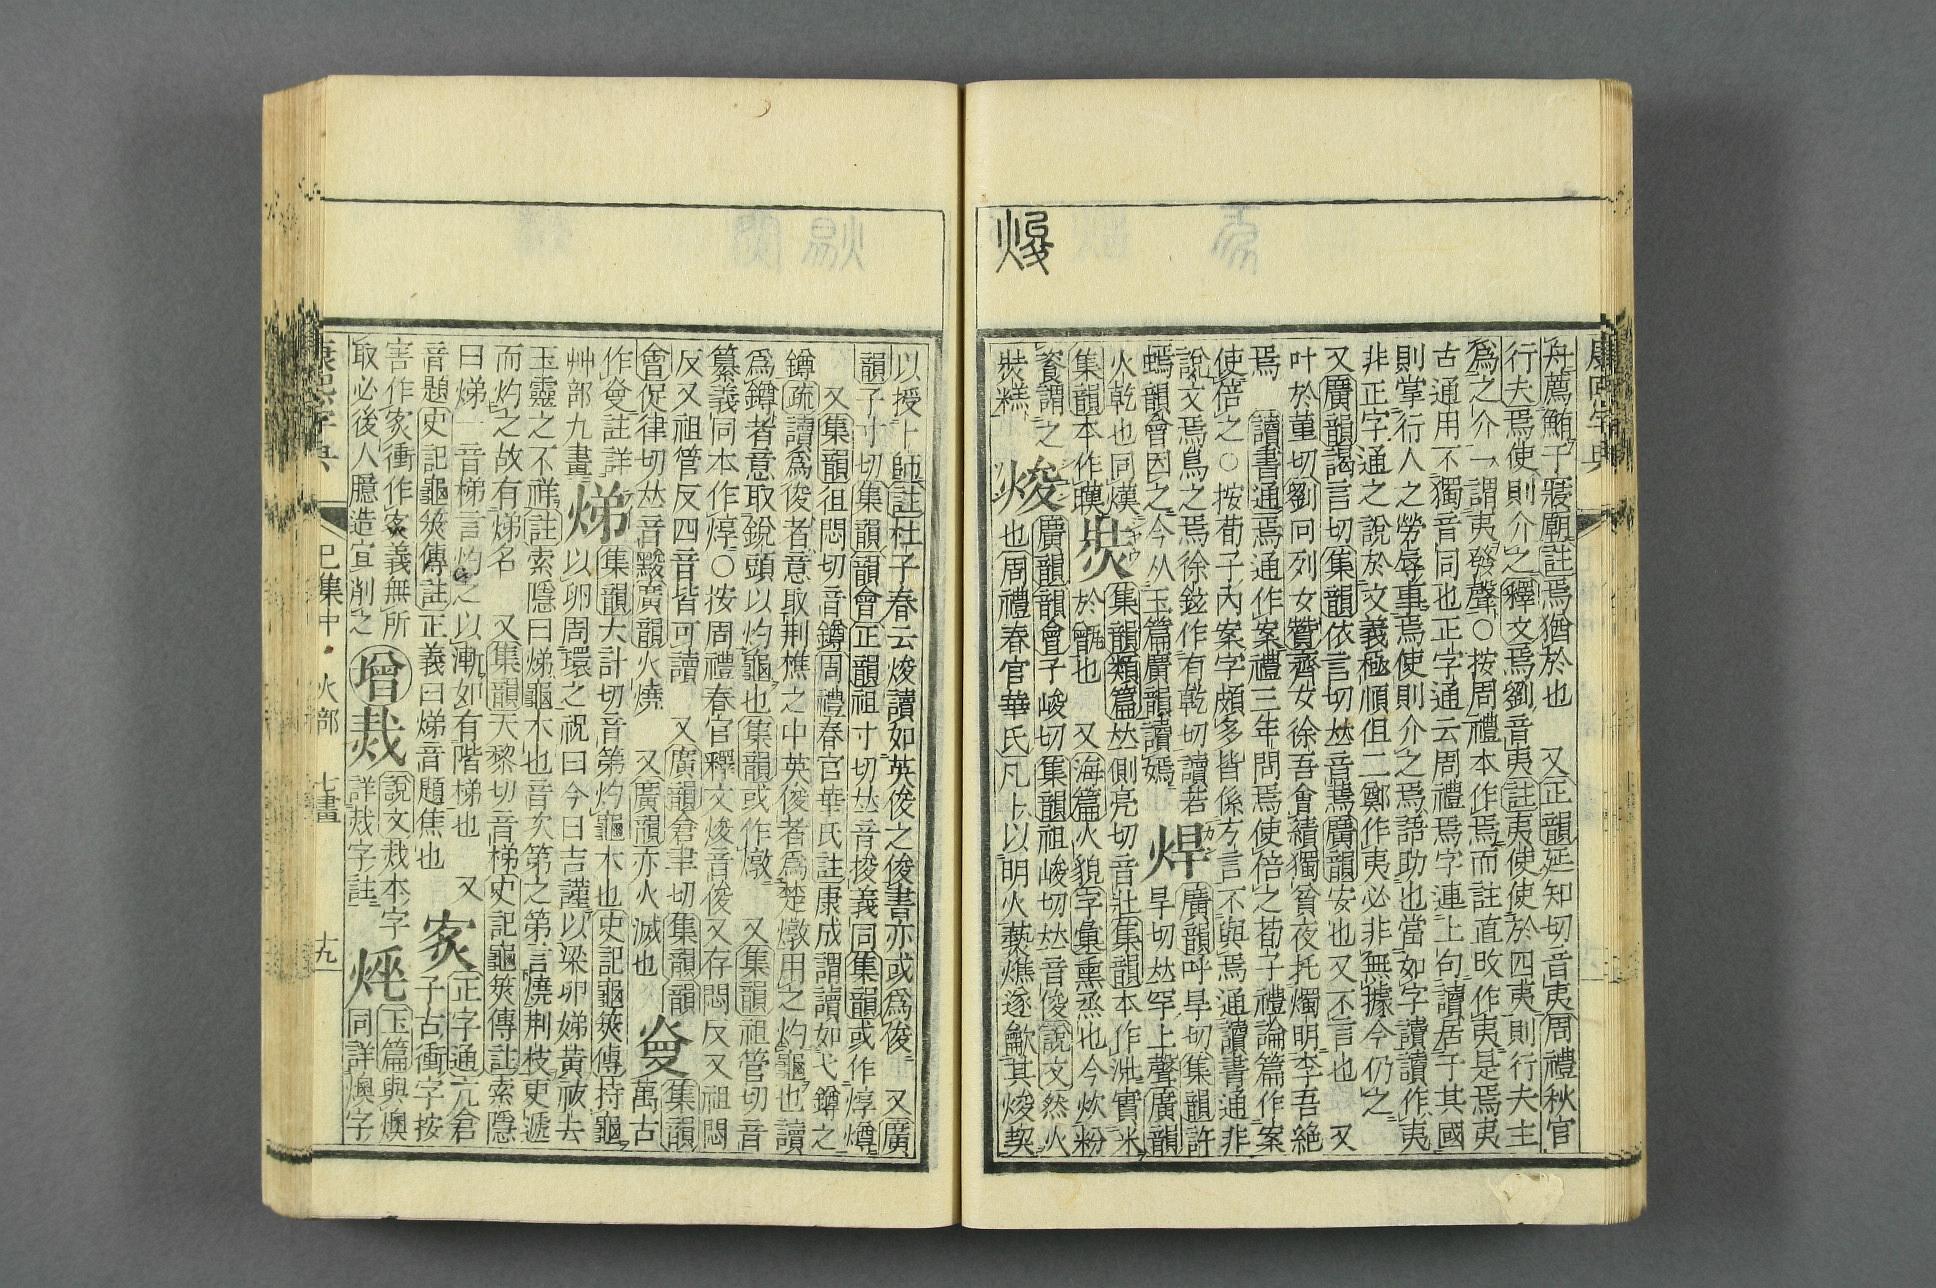 康熙字典
焌
舟薦鮪于寢廟註焉猶於也　又正韻延知切音夷周禮秋官
行夫焉使則介之釋文焉劉音夷註夷使使於四夷則行夫主
爲之介一謂夷發聲○按周禮本作焉而註直改作夷是焉夷
古通用不獨音同也正字通云周禮焉字連上句讀居于其國
則掌行人之勞辱事焉使則介之焉語助也當如字讀讀作夷
非正字通之說於文義極順但二鄭作夷必非無據今仍之　又
又廣韻謁言切集韻依言切𠀤音蔫廣韻安也又不言也　又
叶於董切劉向列女贊齊女徐吾會績獨貧夜托燭明李吾絕
焉　讀書通焉通作案禮三年問焉使倍之荀子禮論篇作案
使倍之○按荀子內案字頗多皆係方言不與焉通讀書通非
說文焉鳥之焉徐鉉作有乾切讀若
蜹韻會因之今从玉篇廣韻讀嫣　焊　廣韻呼旱切集韻許
旱切𠀤罕上聲廣韻
火乾也同熯
集韻本作暵　焋　集韻類篇𠀤側亮切音壯集韻本作
於甑也　又海篇火貌字彙熏烝也今炊粉
餈謂之
裝糕　焌　廣韻韻會子峻切集韻祖峻切𠀤音俊說文然火
也周禮春官華氏凡卜以明火爇燋遂龡其焌契
以授卜師註杜子春云焌讀如英俊之俊書亦或爲俊　又廣
韻子寸切集韻韻會正韻祖寸切𠀤音捘義同集韻或作焞燇
又集韻徂悶切音鐏周禮春官華氏註康成謂讀如戈鐏之
鐏疏讀爲俊者意取荆樵之中英俊者爲楚燉用之灼龜也讀
爲鐏者意取銳頭以灼龜也集韻或作燉　又集韻祖管切音
纂義同本作焞○按周禮春官釋文焌音俊又存悶反又祖悶
反又祖管反四音皆可讀　又廣韻倉聿切集韻韻
會促律切𠀤音黢廣韻火燒　又廣韻亦火滅也
集韻
萬古
作㷇註詳
艸部九畫　焍　集韻大計切音第灼龜木也史記龜筴傳持龜
以卵周環之祝曰今日吉謹以梁卵焍黃祓去
玉靈之不祥註索隱曰焍龜木也音次第之第言燒荆枝更遞
而灼之故有焍名　又集韻天黎切音梯史記龜筴傳註索隱
曰焍一音梯言灼之以漸如有階梯也　又
音題史記龜筴傳註正義曰焍音題焦也
正字通亢倉
子古衝字按
害作𡧱衝作𤉡義無所
取必後人臆造宜削之　增　烖　說文烖本字
詳烖字註　玉篇與燠
同詳燠字
康熙字典
巳集中　火部　七畫　十九